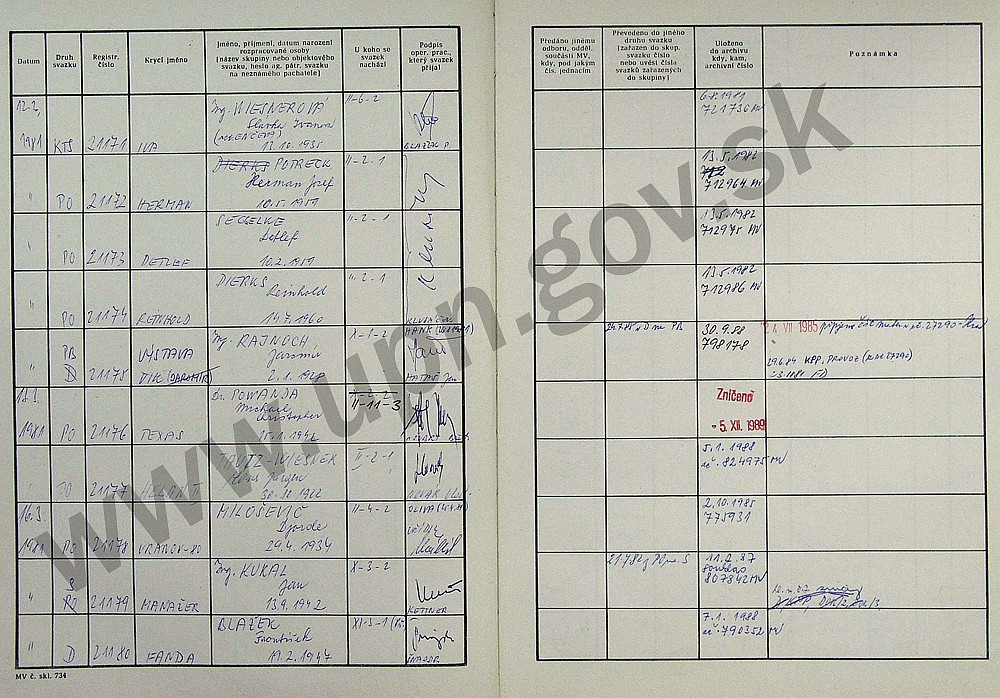 Datum
Druh svazku
Registr. číslo
Krycí jméno
Jméno, příjmení, datum narození
rozpracované osoby
[název skupiny nebo objektového
svazku, heslo ag. pátr. svazku
na neznámého pachatele]
U koho se
svazek
nachází
Podpis
oper. prac.,
který svazek
přijal
Předáno jinému
odboru, odděl.
součásti MV,
kdy, pod jakým
čís. jednacím
Převedeno do jiného
druhu svazku
[zařazen do skup.
svazku číslo
nebo uvést čísla
svazků zařazených
do skupiny]
Uloženo
do archivu
kdy, kam,
archivní číslo
Poznámka
12.2.
1981 KTS 21171 IVA
Ing. WIESNEROVÁ
Slávka Ivanova
12.10.1935
II-6-2
BLAŽEK P.
6.8.1981
721736 MV
" PO 21172 HERMAN
DIERKS POTRECK
Herman Josef
10.5.1959
II-2-1
13.5.1982
712964 MV
" PO 21173 DETLEF
SEGELKE
Detlef
10.2.1959
II-2-1
13.5.1982
712975 MV
" PO 21174 REINHOLD
DIERKS
Reinhold
14.7.1960
II-2-1
13.5.1982
712986 MV
PB VÝSTAVA
" D 21175
Ing. RAJNOCH
Jaromír
2.1.1928
X-1-2
MATAS Jan
30.9.88
798178
24. VII 1985
KPP. PROVOZ
12.3.
1981 PO 21176 TEXAS
Dr. POWANDA
Michael
Christopher
15.1.1942
X-2-2
II-11-3
Zničeno
- 5. XII. 1989
" PO 21177
TAUTZ-WIESNER
Hans Jürgen
30.10.1922
II-2-1
NOVÁK
5.1.1988
824975 MV
16.3.
1981 PO 21178 VRANOV-80
MILOŠEVIČ
Djorde
29.4.1934
II-4-2
2.10.1985
775931
S
" PO 21179 MANAŽER
Ing. KUKAL
Jan
13.9.1942
X-3-2
KETTNER
11.2.87
807842 MV
" D 21180 FANDA
BLAŽEK
František
19.2.1947
XI-3-1
7.1.1988
790352 MV
MV č. skl. 734
www.upn.gov.sk